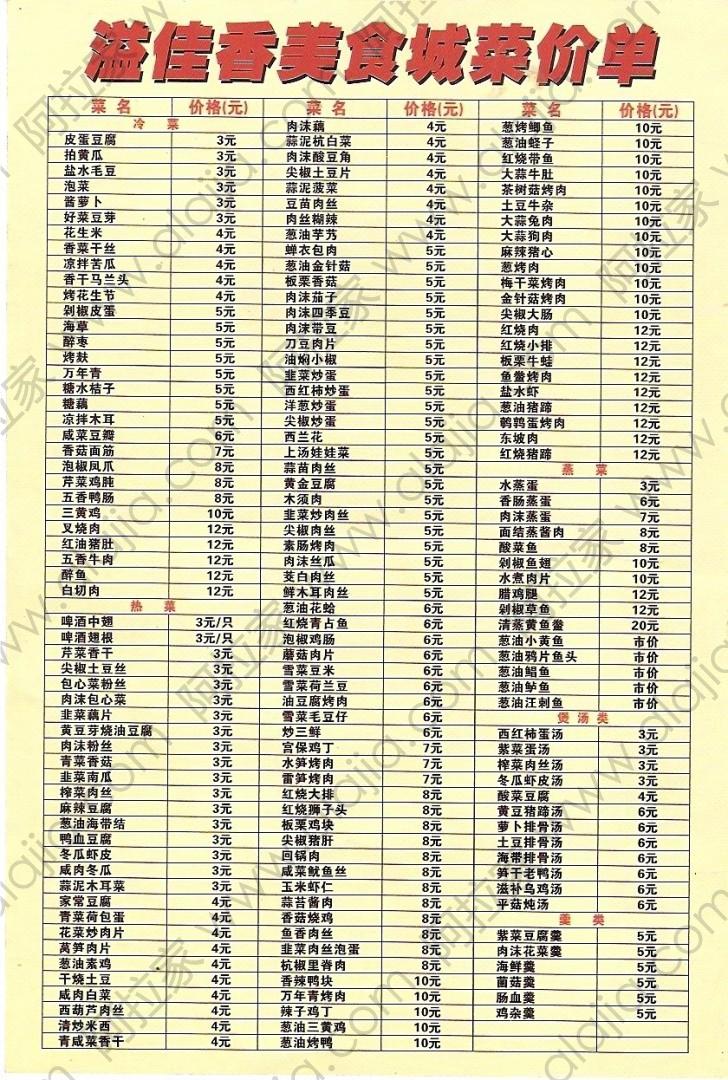 溢佳香美食城菜价单
菜名 价格(元)
冷菜
皮蛋豆腐 3元
拍黄瓜 3元
盐水毛豆 3元
泡菜 3元
酱萝卜 3元
好菜豆芽 3元
花生米 4元
香菜干丝 4元
凉拌苦瓜 4元
香干马兰头 4元
烤花生节 4元
剁椒皮蛋 5元
海草 5元
醉枣 5元
烤麸 5元
万年青 5元
糖水桔子 5元
糖藕 5元
凉拌木耳 5元
咸菜豆瓣 6元
香菇面筋 7元
泡椒凤爪 8元
芹菜鸡肫 8元
五香鸭肠 8元
三黄鸡 10元
叉烧肉 12元
红油猪肚 12元
五香牛肉 12元
醉鱼 12元
白切肉 12元
热菜
啤酒中翅 3元/只
啤酒翅根 3元/只
芹菜香干 3元
尖椒土豆丝 3元
包心菜粉丝 3元
肉沫包心菜 3元
韭菜藕片 3元
黄豆芽烧油豆腐 3元
肉沫粉丝 3元
青菜香菇 3元
韭菜南瓜 3元
榨菜肉丝 3元
麻辣豆腐 3元
葱油海带结 3元
鸭血豆腐 3元
冬瓜虾皮 3元
咸肉冬瓜 3元
蒜泥木耳菜 3元
家常豆腐 4元
青菜荷包蛋 4元
花菜炒肉片 4元
莴笋肉片 4元
葱油素鸡 4元
干烧土豆 4元
咸肉白菜 4元
西葫芦肉丝 4元
清炒米西 4元
青咸菜香干 4元
菜名 价格(元)
肉沫藕 4元
蒜泥杭白菜 4元
肉沫酸豆角 4元
尖椒土豆片 4元
蒜泥菠菜 4元
豆苗肉丝 4元
肉丝糊辣 4元
葱油芋艿 4元
蝉衣包肉 5元
葱油金针菇 5元
板栗香菇 5元
肉沫茄子 5元
肉沫四季豆 5元
肉沫带豆 5元
刀豆肉片 5元
油焖小椒 5元
韭菜炒蛋 5元
西红柿炒蛋 5元
洋葱炒蛋 5元
尖椒炒蛋 5元
西兰花 5元
上汤娃娃菜 5元
蒜苗肉丝 5元
黄金豆腐 5元
木须肉 5元
韭菜炒肉丝 5元
尖椒肉丝 5元
素肠烤肉 5元
肉沫丝瓜 5元
茭白肉丝 5元
鲜木耳肉丝 5元
葱油花蛤 6元
红烧青占鱼 6元
泡椒鸡肠 6元
蘑菇肉片 6元
雪菜豆米 6元
雪菜荷兰豆 6元
油豆腐烤肉 6元
雪菜毛豆仔 6元
炒三鲜 6元
宫保鸡丁 7元
水笋烤肉 7元
雷笋烤肉 7元
红烧大排 8元
红烧狮子头 8元
板栗鸡块 8元
尖椒猪肝 8元
回锅肉 8元
咸菜鱿鱼丝 8元
玉米虾仁 8元
蒜苔酱肉 8元
香菇烧鸡 8元
鱼香肉丝 8元
韭菜肉丝泡蛋 8元
杭椒里脊肉 8元
香辣鸭块 10元
万年青烤肉 10元
辣子鸡丁 10元
葱油三黄鸡 10元
葱油烤鸭 10元
菜名 价格(元)
葱烤鲫鱼 10元
葱油蛏子 10元
红烧带鱼 10元
大蒜牛肚 10元
茶树菇烤肉 10元
土豆牛杂 10元
大蒜兔肉 10元
大蒜狗肉 10元
麻辣猪心 10元
葱烤肉 10元
梅干菜烤肉 10元
金针菇烤肉 10元
尖椒大肠 10元
红烧肉 12元
红烧小排 12元
板栗牛蛙 12元
鱼鲞烤肉 12元
盐水虾 12元
葱油猪蹄 12元
鹌鹑蛋烤肉 12元
东坡肉 12元
红烧猪蹄 12元
蒸菜
水蒸蛋 3元
香肠蒸蛋 6元
肉沫蒸蛋 7元
面结蒸酱肉 8元
酸菜鱼 8元
剁椒鱼翅 10元
水煮肉片 10元
腊鸡腿 12元
剁椒草鱼 12元
清蒸黄鱼鲞 20元
葱油小黄鱼 市价
葱油鸦片鱼头 市价
葱油鲳鱼 市价
葱油鲈鱼 市价
葱油汪刺鱼 市价
煲汤类
西红柿蛋汤 3元
紫菜蛋汤 3元
榨菜肉丝汤 3元
冬瓜虾皮汤 3元
酸菜豆腐 4元
黄豆猪蹄汤 6元
萝卜排骨汤 6元
土豆排骨汤 6元
海带排骨汤 6元
笋干老鸭汤 6元
滋补乌鸡汤 6元
平菇炖汤 6元
羹类
紫菜豆腐羹 5元
肉沫花菜羹 5元
海鲜羹 5元
菌菇羹 5元
肠血羹 5元
鸡杂羹 5元
阿拉家 www.alajia.com